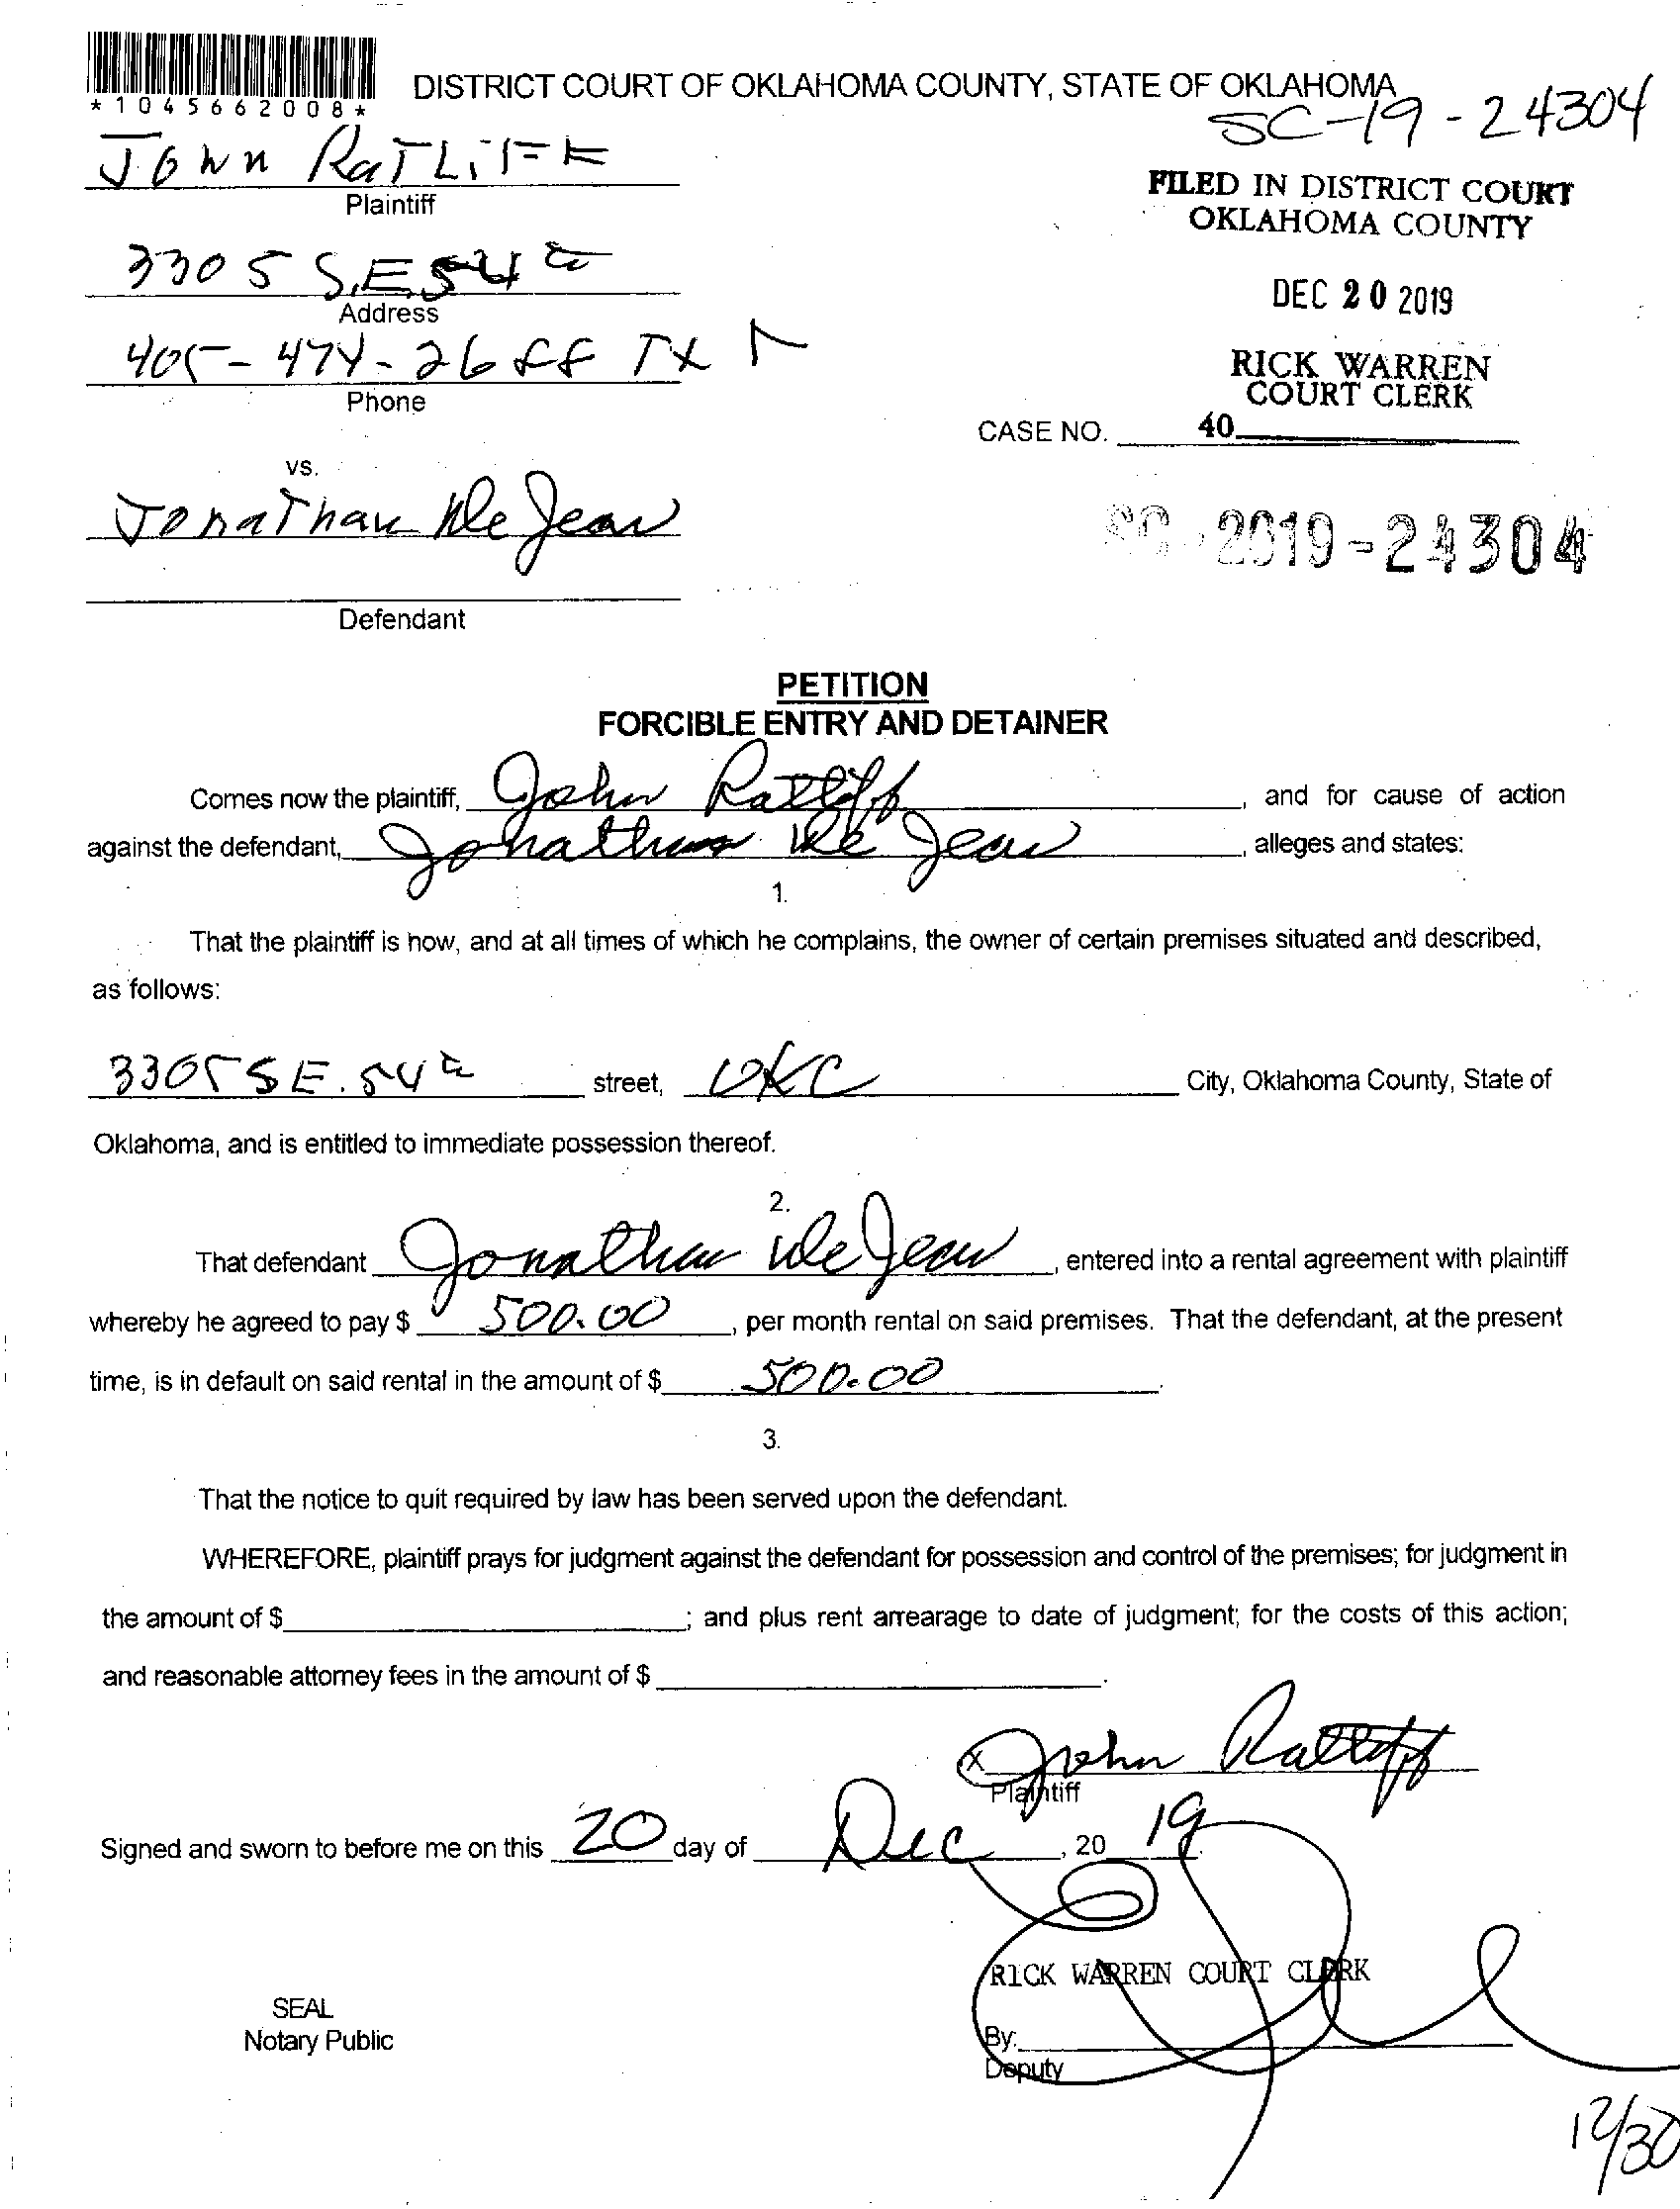 *1045662008*
DISTRICT COURT OF OKLAHOMA COUNTY, STATE OF OKLAHOMA
SC-19-24304
John RaTLiFF
Plaintiff
FILED IN DISTRICT COURT
OKLAHOMA COUNTY
3305 S.E. 54th
Address
DEC 20 2019
405-474-26
Phone
RICK WARREN
COURT CLERK
CASE NO. 40
vs.
JonaThan DeJean
SC-2019-24304
Defendant
PETITION
FORCIBLE ENTRY AND DETAINER
Comes now the plaintiff, John Ratliff, and for cause of action
against the defendant, Jonathan De Jean, alleges and states:
1.
That the plaintiff is now, and at all times of which he complains, the owner of certain premises situated and described,
as follows:
3305 SE. 54th street, OKC City, Oklahoma County, State of
Oklahoma, and is entitled to immediate possession thereof.
2.
That defendant Jonathan DeJean, entered into a rental agreement with plaintiff
whereby he agreed to pay $ 500.00, per month rental on said premises. That the defendant, at the present
time, is in default on said rental in the amount of $ 500.00.
3.
That the notice to quit required by law has been served upon the defendant.
WHEREFORE, plaintiff prays for judgment against the defendant for possession and control of the premises; for judgment in
the amount of $ ; and plus rent arrearage to date of judgment; for the costs of this action;
and reasonable attorney fees in the amount of $ .
X John Ratliff
Plaintiff
Signed and sworn to before me on this 20 day of Dec, 20 19.
RICK WARREN COURT CLERK
SEAL
Notary Public
By:
Deputy
12/30